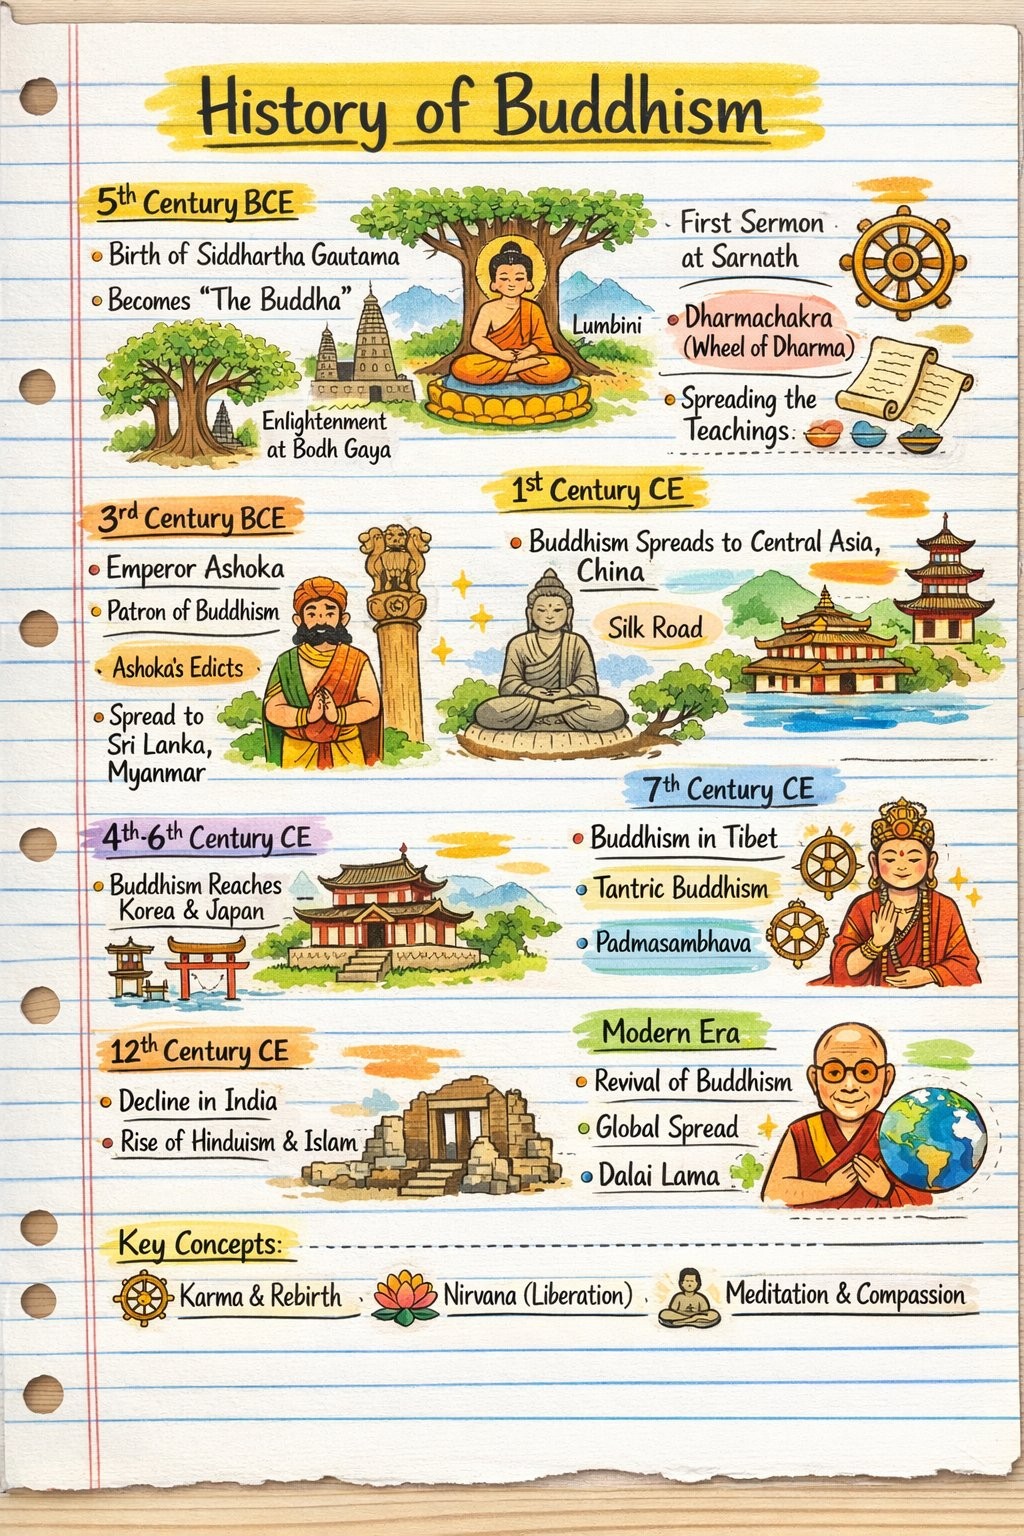 History of Buddhism
5th Century BCE
• Birth of Siddhartha Gautama
• Becomes “The Buddha”
Enlightenment
at Bodh Gaya
Lumbini
First Sermon
at Sarnath
• Dharmachakra
(Wheel of Dharma)
• Spreading the
Teachings:
3rd Century BCE
• Emperor Ashoka
• Patron of Buddhism
Ashoka's Edicts
• Spread to
Sri Lanka,
Myanmar
1st Century CE
• Buddhism Spreads to Central Asia,
China
Silk Road
4th-6th Century CE
• Buddhism Reaches
Korea & Japan
7th Century CE
• Buddhism in Tibet
• Tantric Buddhism
• Padmasambhava
12th Century CE
• Decline in India
• Rise of Hinduism & Islam
Modern Era
• Revival of Buddhism
• Global Spread
• Dalai Lama
Key Concepts:
Karma & Rebirth
Nirvana (Liberation)
Meditation & Compassion